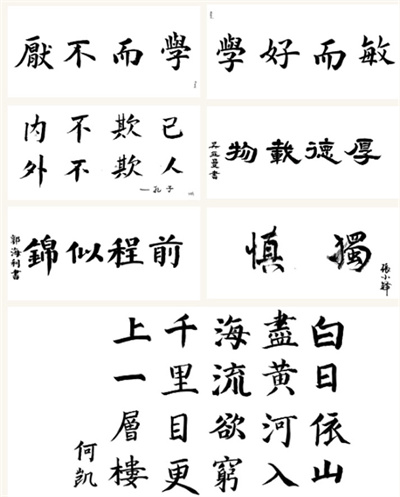 學而不厭
敏而好學
内不欺己
外不欺人
一孔子
厚德載物
前程似錦
郭海利書
慎獨
白日依山
盡黄河入
海流欲窮
千里目更
上一層樓
何凯